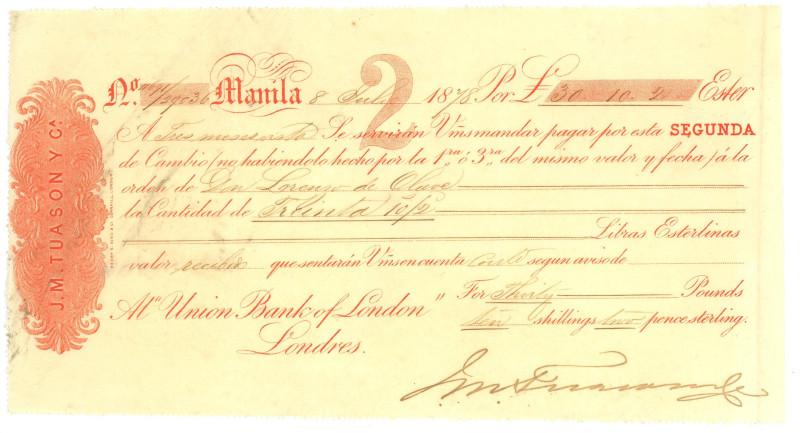 J. M. TUASON Y Cᴬ.
2
Nº. /29036 Manila 8 Julio 1878 Por £ 30.10.2 Ester
A Tres meses vista Se servirán Vms mandar pagar por esta SEGUNDA
de Cambio (no habiendolo hecho por la 1ra ó 3ra del mismo valor y fecha) á la
orden de Don Lorenzo de
la Cantidad de Treinta 10/2
Libras Esterlinas
valor recibido que sentarán Vms en cuenta segun aviso de
Al Union Bank of London " For Thirty Pounds
ten shillings two pence sterling.
Londres.
J. M. Tuason y Ca